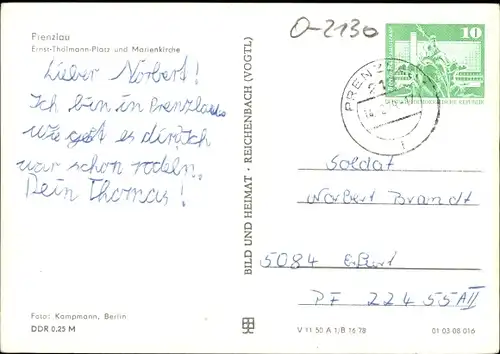 Prenzlau
Ernst-Thälmann-Platz und Marienkirche
Lieber Norbert!
Ich bin in Prenzlau
wie geht es dir Ich
war schon rodeln.
Dein Thomas!
Foto: Kampmann, Berlin
DDR 0,25 M
BILD UND HEIMAT · REICHENBACH (VOGTL)
O-2130
10
PRENZ
Soldat
Norbert Brandt
5084 Erfurt
PF 22455AII
V 11 50 A 1/B 16 78
01 03 08 016